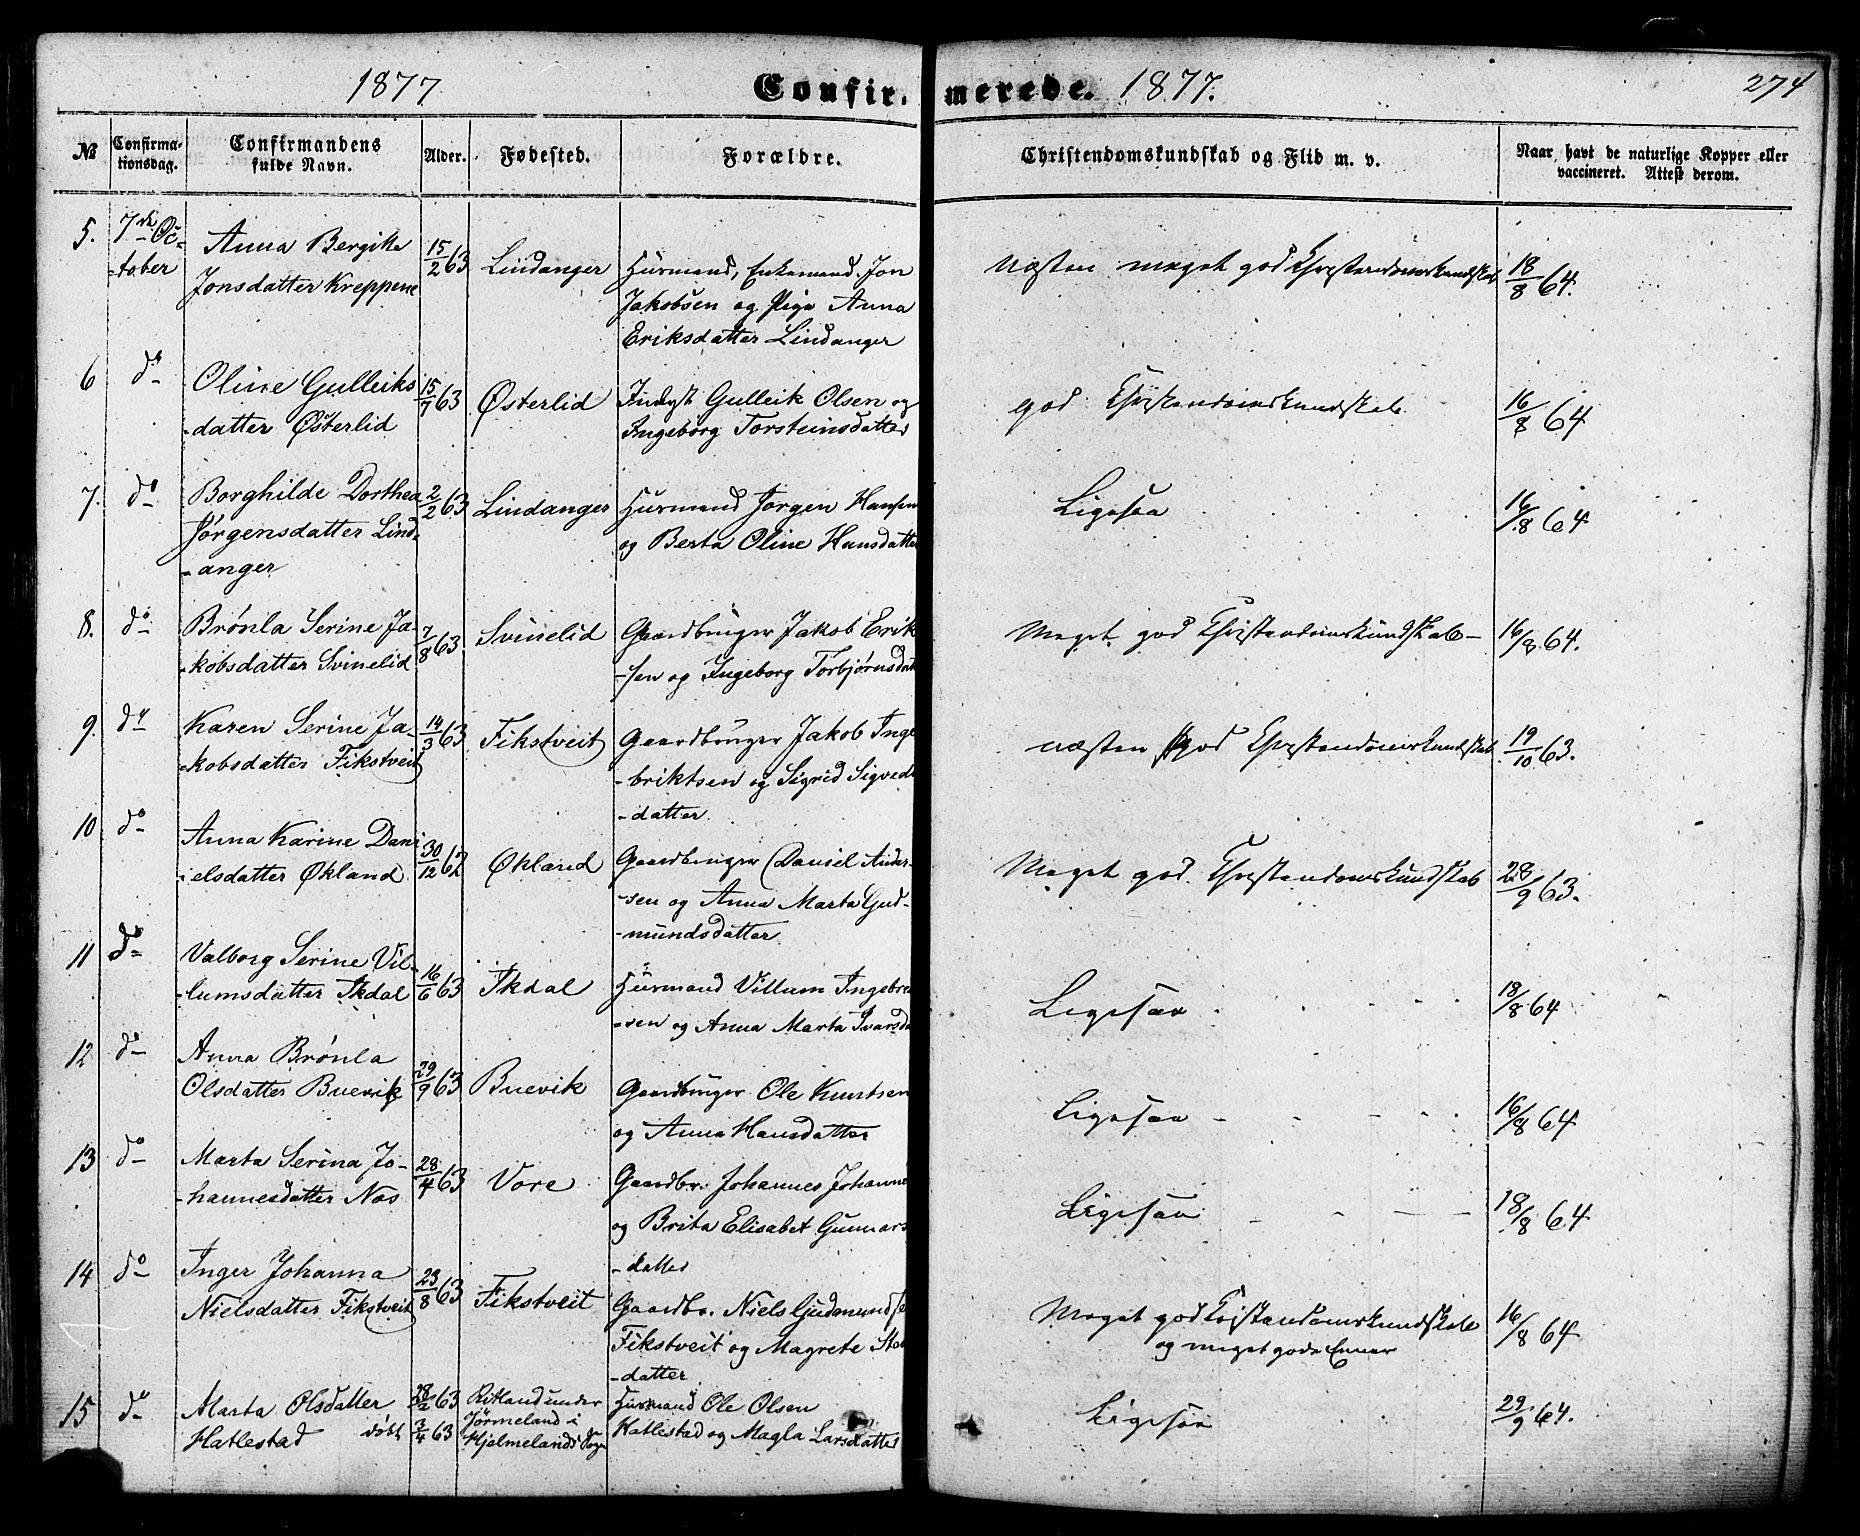 1877 Confirmerede. 1877. 274
№ Confirmationsdag. Confirmandens fulde Navn. Alder. Fødested. Forældre. Christendomskundskab og Flid m. v. Naar havt de naturlige Kopper eller vaccineret. Attest derom.
5. 7de Oc- Anna Bergitte 15/2 63 Lindanger Huusmand, Enkemand Jon Næsten meget god Christendomskundskab 18/8 64.
-tober Jonsdatter Kreppene Jakobsen og Pige Anna
Eriksdatter Lindanger
6 do Oline Gulleiks 15/7 63 Østerlid Inds Gulleik Olsen og god Christendomskundskab 16/8 64
-datter Østerlid Ingeborg Torsteinsdatter
7. do Borghilde Dorthea 2/2 63 Lindanger Huusmand Jørgen Hansen Ligesaa 16/8 64
Jørgensdatter Lind- og Berta Oline Hansdatter
-anger
8. do Brønla Serine Ja- 7/8 63. Svinelid Gaardbruger Jakob Erik Meget god Christendomskundskab 16/8 64.
-kobsdatter Svinelid -sen og Ingeborg Torbjørnsdat
9. do Karen Serine Ja- 14/3 63 Fikstveit Gaardbruger Jakob Inge næsten god Christendomskundskab 19/10 63.
-kobsdatter Fikstveit -briktsen og Sigrid Sigveds
-datter
10 do Anna Karine Dani 30/12 62 Økland Gaardbruger Daniel Ander- Meget god Christendomskundskab 28/9 63.
-elsdatter Økland -sen og Anna Marta Gud-
-mundsdatter
11 do Valborg Serine Vil- 16/6 63 Ikdal Huusmand Villum Ingebre Ligesaa 18/8 64
-lumsdatter Ikdal -sen og Anna Marta Ivarsda
12 do Anna Brønla 29/9 63 Buevik Gaardbruger Ole Knutsen Ligesaa 16/8 64
Olsdatter Buevik og Anna Hansdatter
13 do Marta Serina Jo- 28/4 63 Vore Gaardbr. Johannes Johanne Ligesaa 18/8 64
-hannesdatter Nas og Brita Elisabet Gunnars
-datter
14 do Inger Johanna 23/8 63 Fikstveit Gaardbr. Niels Gudmundse Meget god Christendomskundskab 16/8 64
Nielsdatter Fikstveit Fikstveit og Magrete og meget gode Evner
-datter
15 do Marta Olsdatter 28/2 63 Ritland under Huusmand Ole Olsen Ligesaa 29/9 64.
Hatlestad døbt 3/4 63 Jørmeland i Hatlestad og Magla Larsdatter
Hjelmelands Sogn